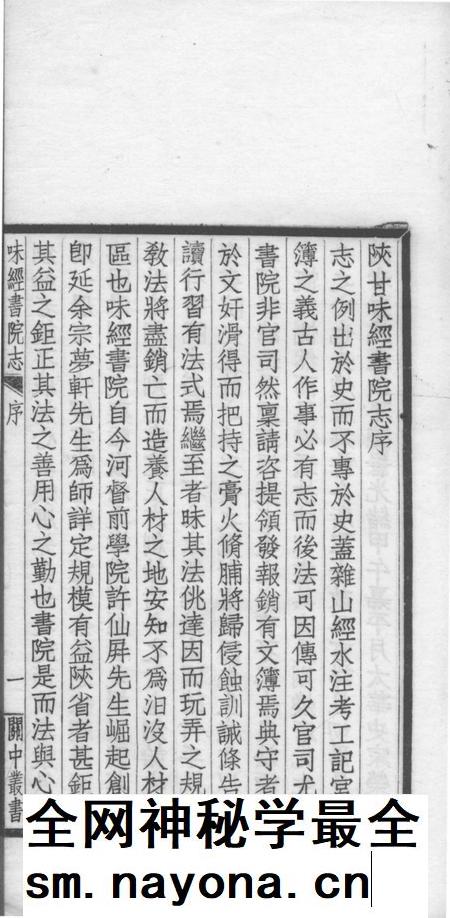 陝甘味經書院志序
志之例出於史而不專於史蓋雜山經水注考工記宮
簿之義古人作事必有志而後法可因傳可久官司尤
書院非官司然稟請咨提領發報銷有文簿焉典守者
於文奸滑得而把持之膏火脩脯將歸侵蝕訓誡條告
讀行習有法式焉繼至者昧其法佻達因而玩弄之規
敎法將盡銷亡而造養人材之地安知不爲汨沒人材
區也味經書院自今河督前學院許仙屏先生崛起創
卽延余宗夢軒先生爲師詳定規模有益陝省者甚鉅
其益之鉅正其法之善用心之勤也書院是而法與心
味經書院志
序
一
關中叢書
全网神秘学最全
sm.nayona.cn